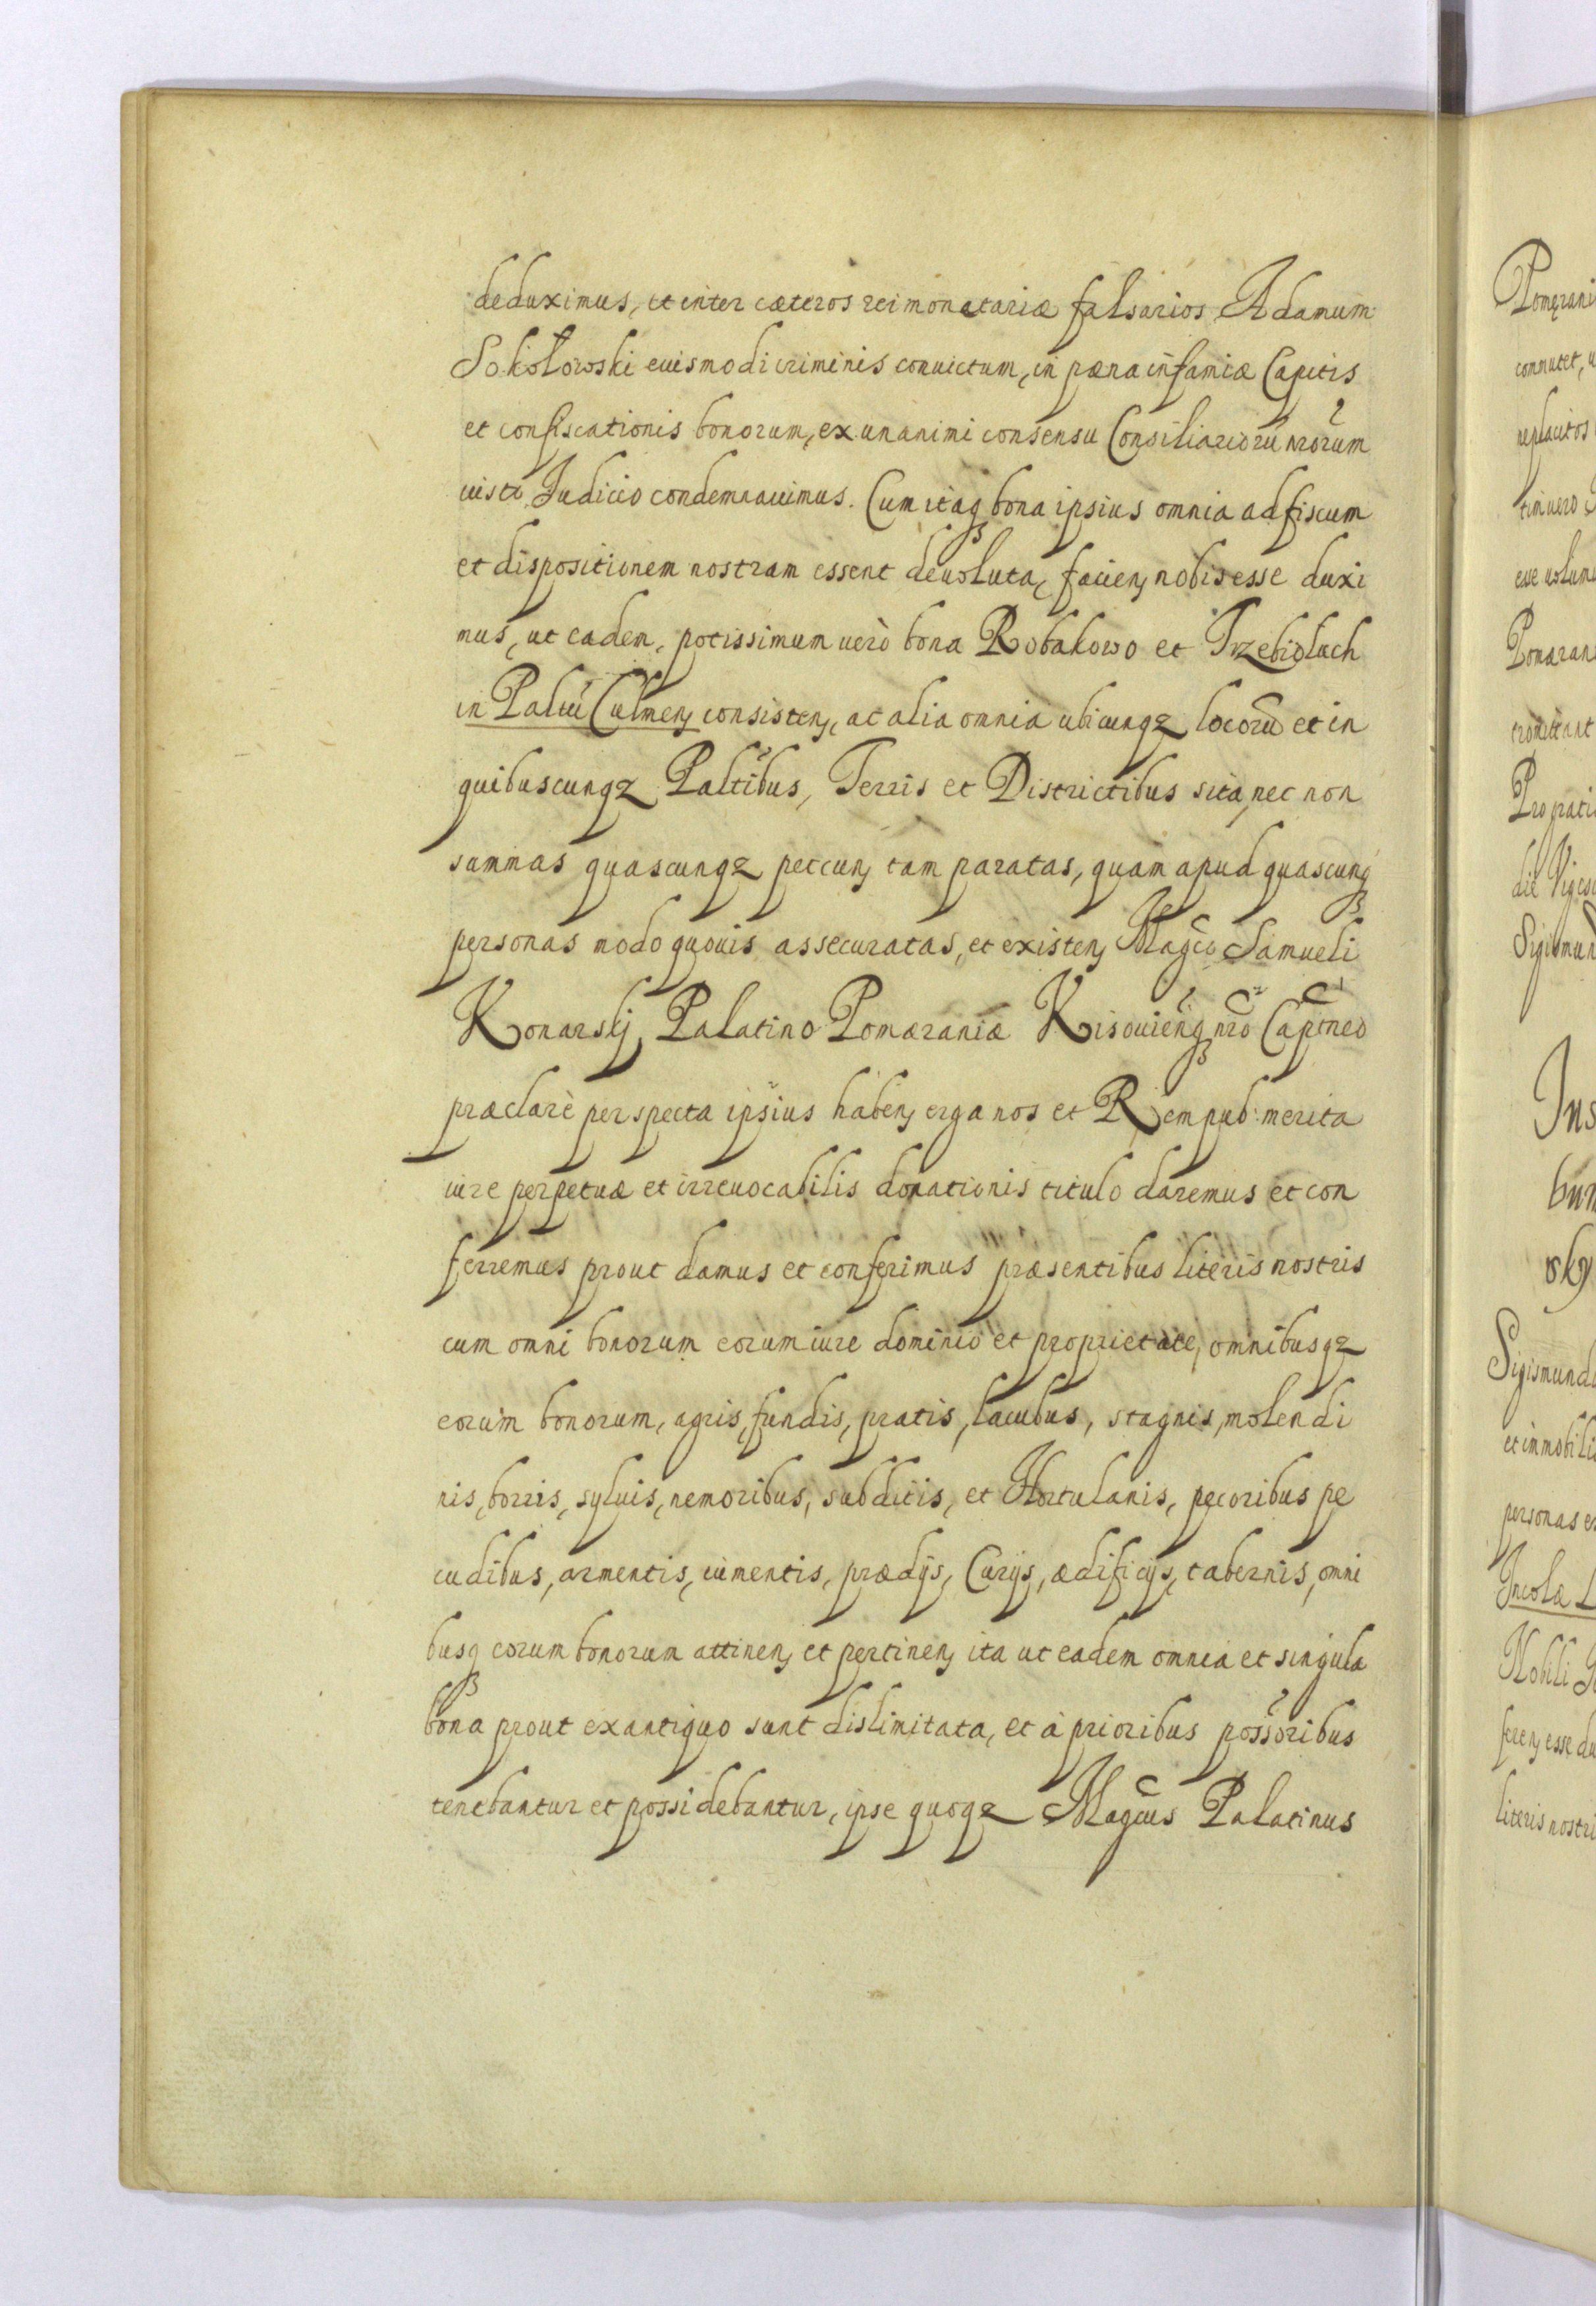 deduximus, et inter cæteros rei monetariæ falsarios Adamum
Sokołowski euismodi criminis conuictum, in pæna infamiæ Capitis
et confiscationis bonorum, ex unanimi consensu Consiliariorũ nrorum
iusto Judicio condemnauimus. Cum itaq bona ipsius omnia ad fiscum
et dispositionem nostram essent deuoluta, facien nobis esse duxi
mus, ut eadem, potissimum uerò bona Robakowo et Trzebioluch
in Paltũ Culmen consisten, ac alia omnia ubicunqz locorũ et in
quibuscunqz Paltibus, Terris et Districtibus sita, nec non
summas quascunqz peccun tam paratas, quam apud quascunq
personas modo quouis assecuratas, et existen Magco Samueli
Konarskj Palatino Pomæraniæ Kisouienq nro Captneo
præclarè perspecta ipsius haben erga nos et Rempub: merita
iure perpetuæ et irreuocabilis donationis titulo daremus et con
ferremus prout damus et conferimus præsentibus literis nostris
cum omni bonorum eorum iure dominio et proprietate, omnibusqz
eorum bonorum, agris, fundis, pratis, lacubus, stagnis, molendi
nis, borris, syluis, nemoribus, subditis, et Hortulanis, pecoribus pe
cudibus, armentis, iumentis, prædijs, Curijs, ædificijs, tabernis, omni
busq eorum bonorum attinen et pertinen ita ut eadem omnia et singula
bona prout ex antiquo sunt dislimitata, et à prioribus possoribus
tenebantur et possidebantur, ipse quoqz Magcus Palatinus